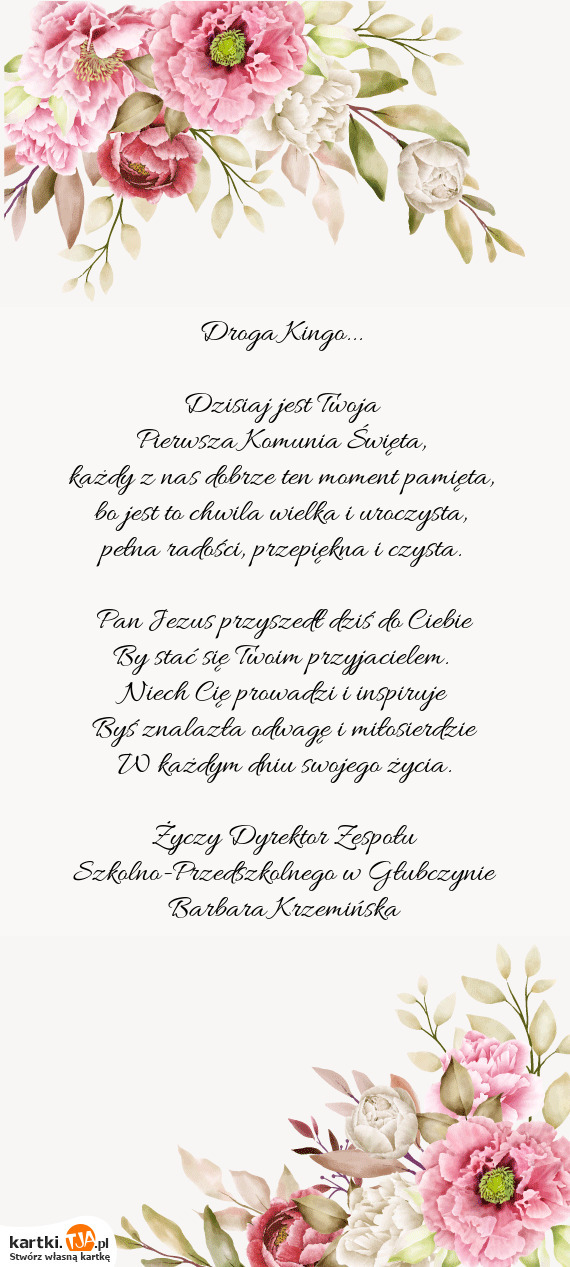 Droga Kingo...
Dzisiaj jest Twoja
Pierwsza Komunia Święta,
każdy z nas dobrze ten moment pamięta,
bo jest to chwila wielka i uroczysta,
pełna radości, przepiękna i czysta.
Pan Jezus przyszedł dziś do Ciebie
By stać się Twoim przyjacielem.
Niech Cię prowadzi i inspiruje
Byś znalazła odwagę i miłosierdzie
W każdym dniu swojego życia.
Życzy Dyrektor Zespołu
Szkolno-Przedszkolnego w Głubczynie
Barbara Krzemińska
kartki.TJA.pl
Stwórz własną kartkę